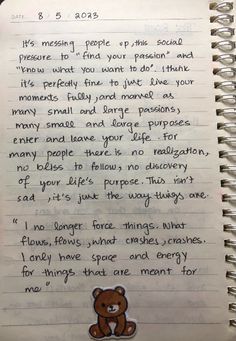 DATE. 8 / 5 / 2023
It's messing people up, this social
pressure to "find your passion" and
"know what you want to do". I think
it's perfectly fine to just live your
moments fully, and marvel as
many small and large passions,
many small and large purposes
enter and leave your life. For
many people there is no realization,
no bliss to follow, no discovery
of your life's purpose. This isn't
sad, it's just the way things are.
"I no longer force things. What
flows, flows, what crashes, crashes.
I only have space and energy
for things that are meant for
me"